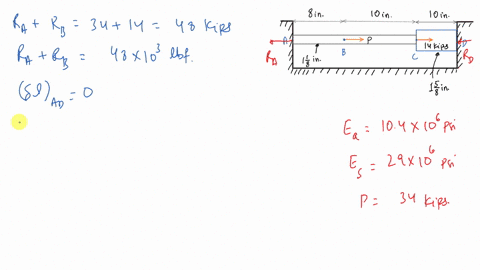 R_A + R_B = 34 + 14 = 48 Kips
R_A + R_B = 48 × 10³ lbf.
(δl)_AD = 0
8 in. 10 in. 10 in.
A P D
B 14 kips
R_A C R_D
1 1/8 in.
1 5/8 in.
E_a = 10.4 × 10⁶ psi
E_s = 29 × 10⁶ psi
P = 34 Kips.